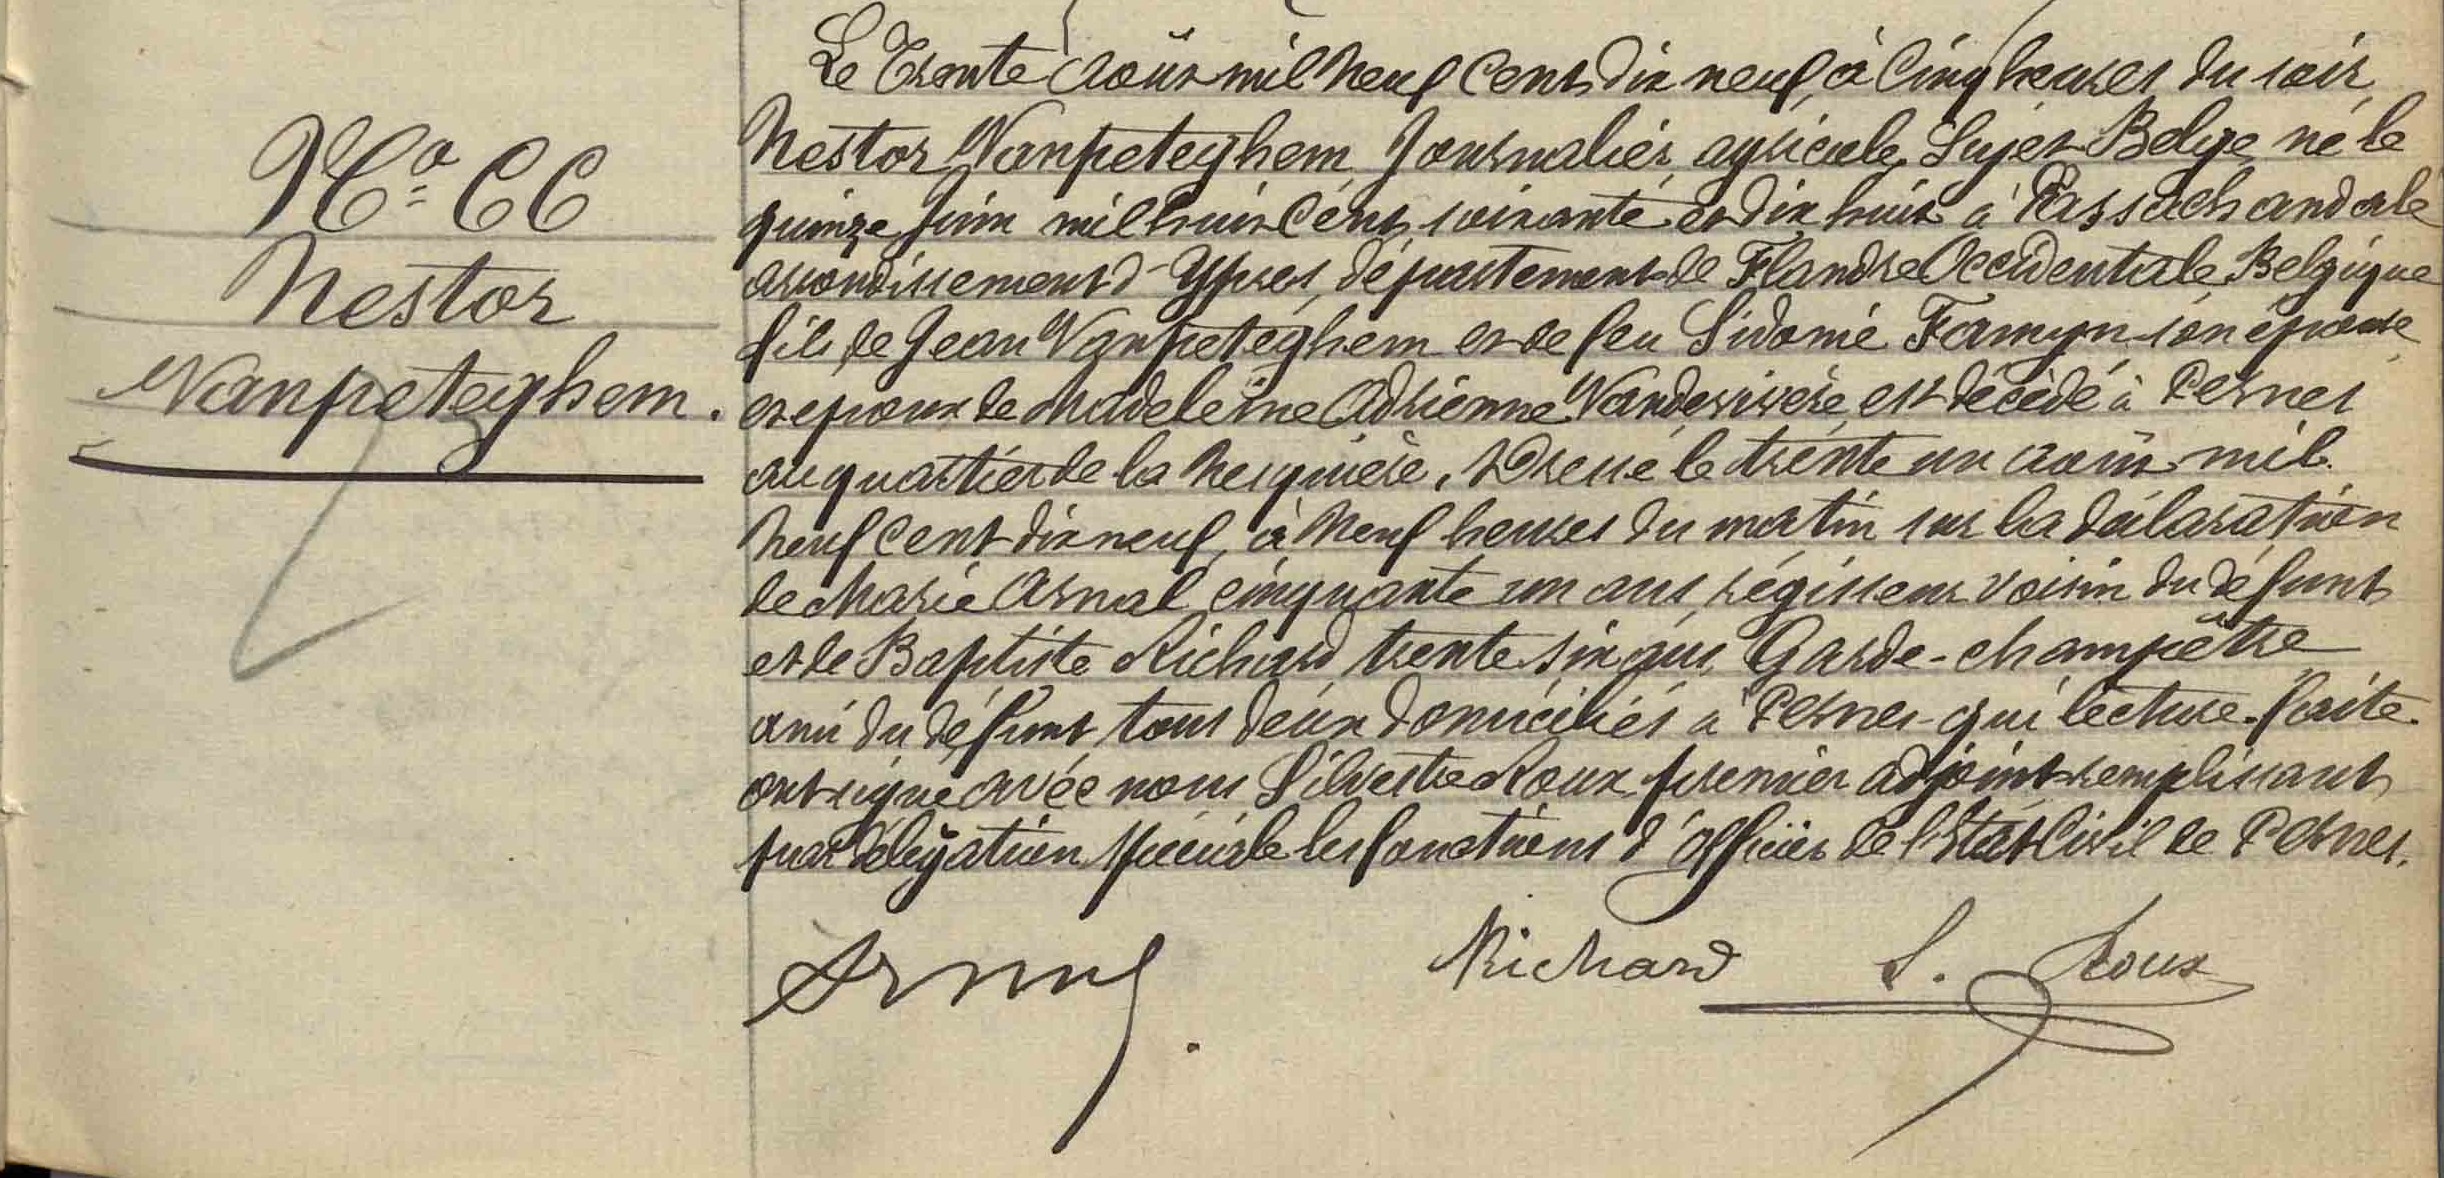 Nº 66
Nestor
Vanpeteghem.
Le Trente Août mil neuf cent dix neuf, à cinq heures du soir,
Nestor Vanpeteghem, Journalier agricole, Sujet Belge, né le
quinze Juin mil huit cent soixante et dix huit à Passachandale
arrondissement d'Ypres, département de Flandre Occidentale, Belgique
fils de Jean Vanpeteghem et de feu Sidonie Famyn son épouse
et époux de Madeleine Adrienne Vanderivière, est décédé à Pernes
au quartier de la Nesquière. Dressé le trente un août mil
neuf cent dix neuf, à neuf heures du matin sur la déclaration
de Marie Arnal, cinquante un ans, régisseur voisin du défunt
et de Baptiste Richard, trente six ans, Garde-champêtre
ami du défunt, tous deux domiciliés à Pernes qui lecture faite
ont signé avec nous Silvestre Roux premier adjoint remplissant
par délégation spéciale les fonctions d'officier de l'Etat Civil de Pernes.
Arnal Richard S. Roux